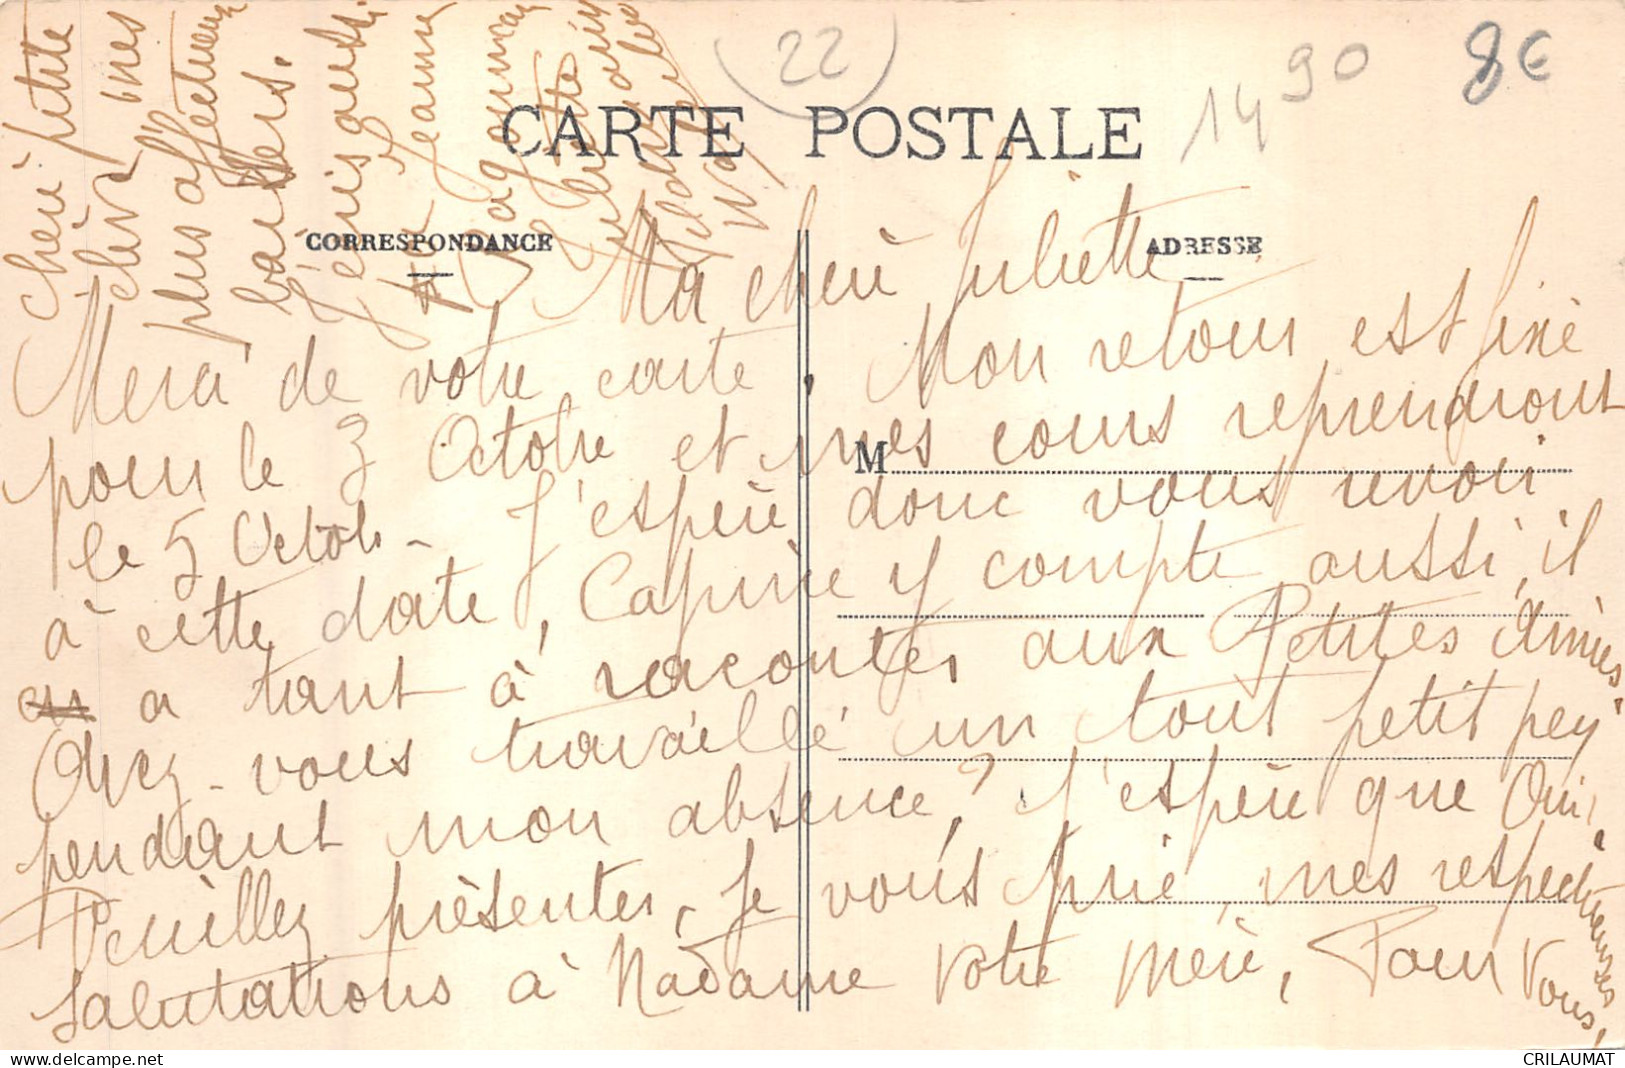 22
1490
8€
CARTE POSTALE
CORRESPONDANCE
ADRESSE
M
Ma chère Juliette
Merci de votre carte. Mon retour est fixé
pour le 3 Octobre et mes cours reprendront
le 5 Octob- J'espère donc vous revoir
à cette date, Caprice y compte aussi, il
a tant à raconter aux Petites Amies.
Avez-vous travaillé un tout petit peu
pendant mon absence? J'espère que Oui.
Veuillez présenter, je vous prie, mes respectueuses
salutations à Madame votre Mère, Pour vous,
chère petite
élève mes
plus affectueux
baisers.
J'écris aussi
à Jeanne
CRILAUMAT